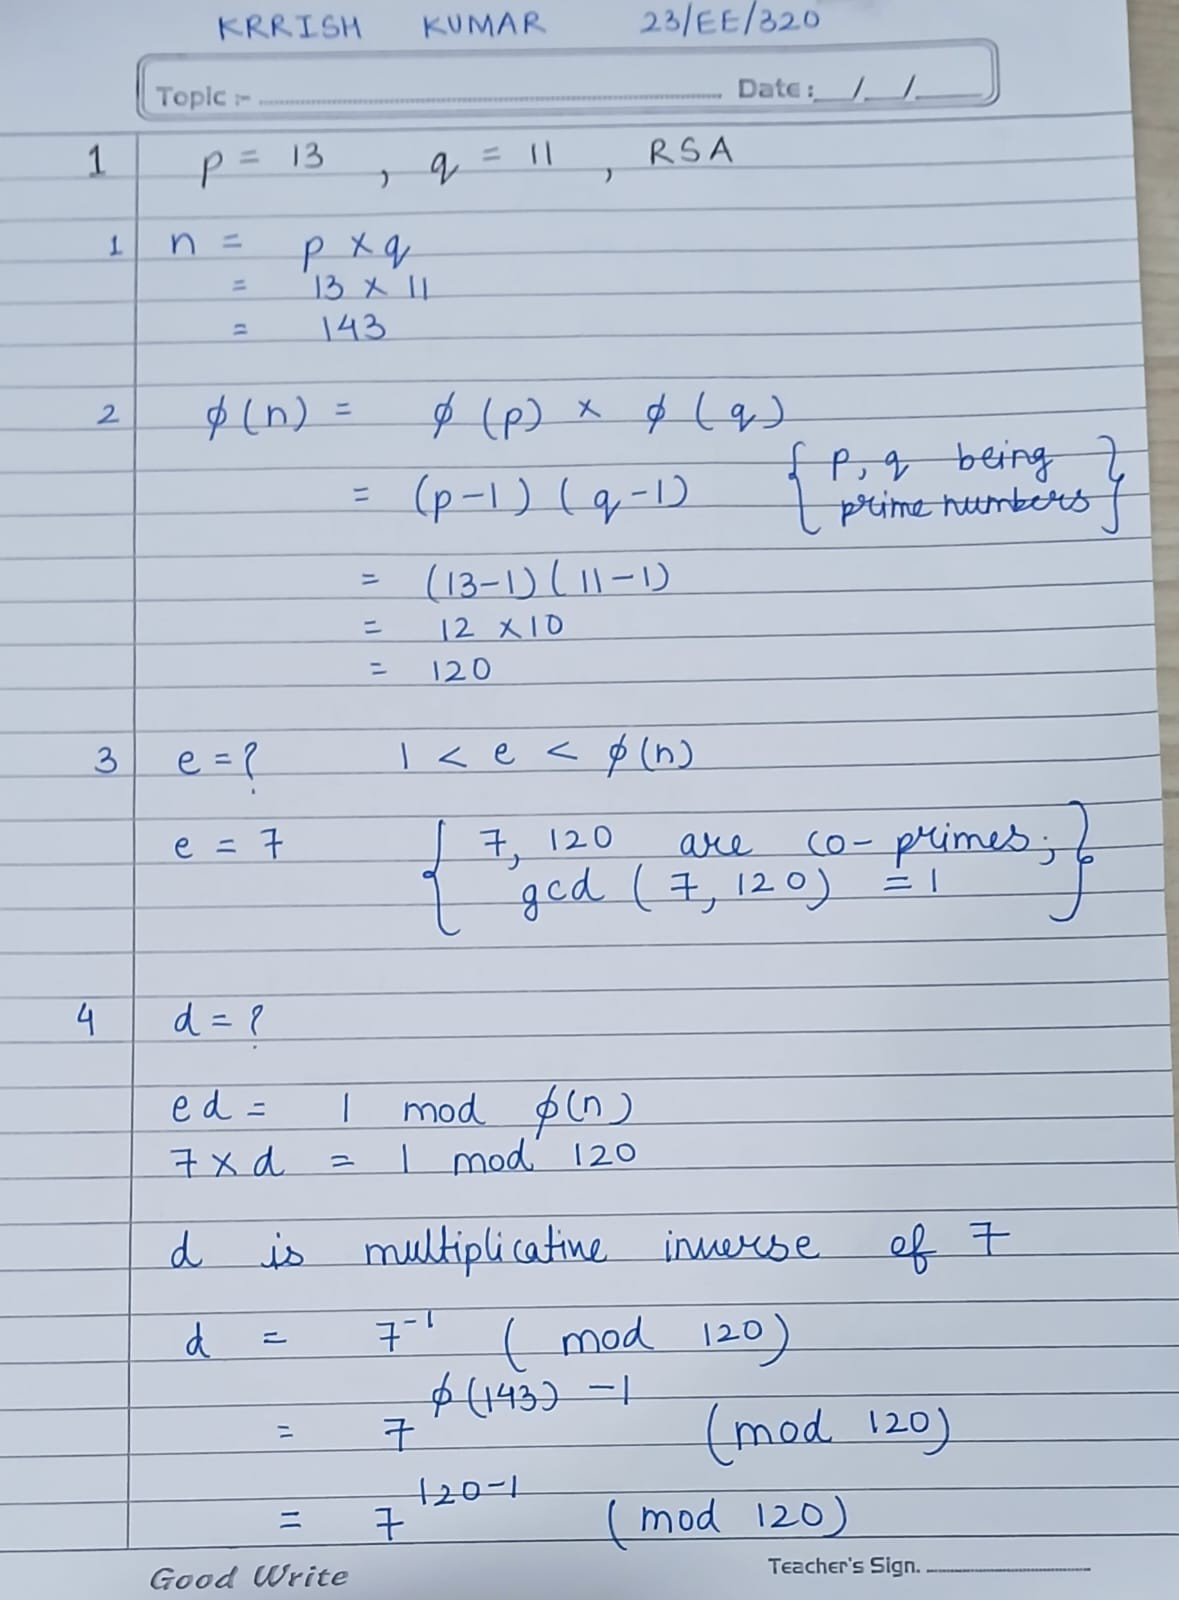 KRRISH KUMAR 23/EE/320
Topic :- Date : / /
1 p = 13 , q = 11 , RSA
1 n = p × q
= 13 × 11
= 143
2 ϕ(n) = ϕ(p) × ϕ(q)
= (p-1)(q-1) { p, q being prime numbers }
= (13-1)(11-1)
= 12 × 10
= 120
3 e = ? 1 < e < ϕ(n)
e = 7 { 7, 120 are co-primes;
gcd (7, 120) = 1 }
4 d = ?
ed = 1 mod ϕ(n)
7 × d = 1 mod 120
d is multiplicative inverse of 7
d = 7⁻¹ (mod 120)
= 7^ϕ(143) -1 (mod 120)
= 7^120-1 (mod 120)
Good Write Teacher's Sign.